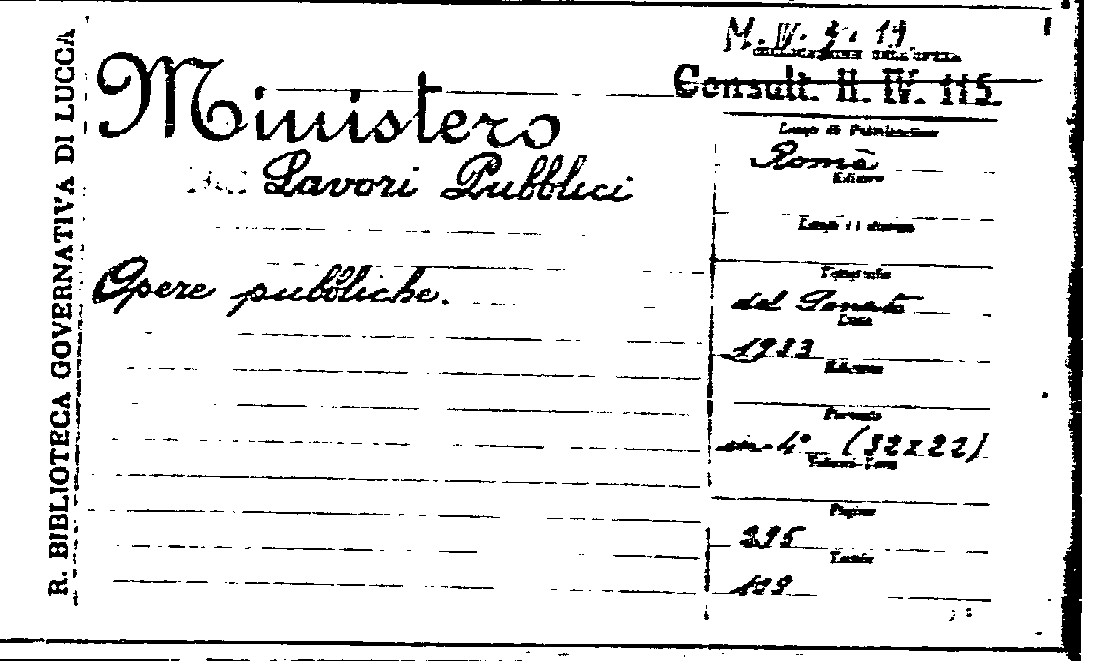 R. BIBLIOTECA GOVERNATIVA DI LUCCA
M. IV. 5. 19
COLLOCAZIONE DELL'OPERA
Consult. H. IV. 115.
Ministero
Lavori Pubblici
Opere pubbliche.
Luogo di Pubblicazione
Roma
Editore
Luogo di stampa
Tipografia
del Senato
Data
1933
Edizione
Formato
in-4° (32x22)
Volumi-Tomi
Pagine
295
Tavole
199